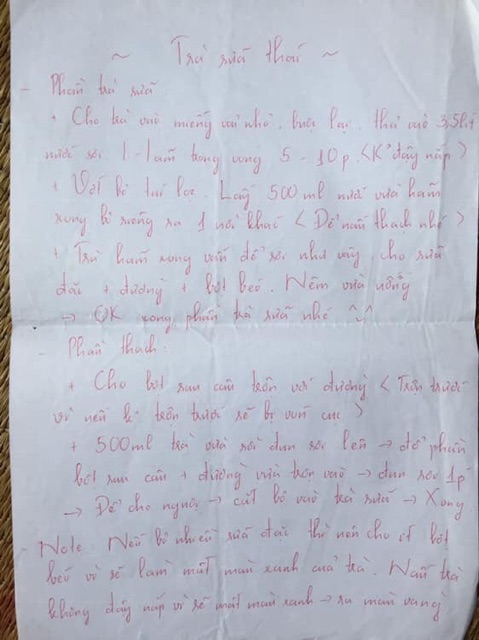 ~ Trà sữa thái ~
- Phần trà sữa
+ Cho trà vào miếng vải nhỏ, buộc lại, thả vào 3,5lit
nước sôi. 1-Hãm trong vòng 5-10p <K° đậy nắp>
+ Vớt bỏ túi lọc. Lấy 500ml nước vừa hãm
xong bỏ riêng ra 1 nồi khác <Để nấu thạch nhé>
+ Trà hãm xong vẫn để sôi như vậy cho sữa
đặc + đường + bột béo. Nêm vừa uống
→ OK xong phần trà sữa nhé ^^
- Phần thạch.
+ Cho bột rau câu trộn với đường <Trộn trước
vì nếu k° trộn trước sẽ bị vón cục>
+ 500ml trà vừa nãy đun sôi lên → đổ phần
bột rau câu + đường vừa trộn vào → đun sôi 1p
→ Để cho nguội → cắt bỏ vào trà sữa → Xong
Note: Nếu bỏ nhiều sữa đặc thì nên cho ít bột
béo vì sẽ làm mất màu xanh của trà. Nấu trà
không đậy nắp vì sẽ mất màu xanh → ra màu vàng